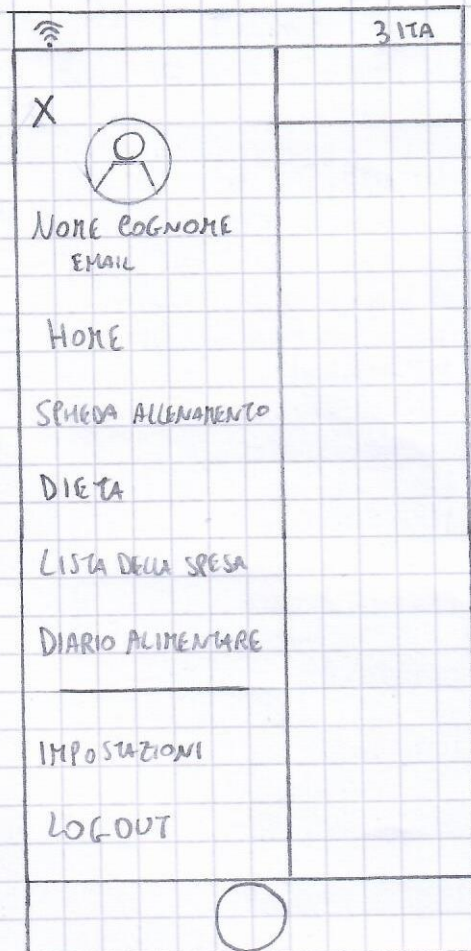 3 ITA
X
NOME COGNOME
EMAIL
HOME
SCHEDA ALLENAMENTO
DIETA
LISTA DELLA SPESA
DIARIO ALIMENTARE
IMPOSTAZIONI
LOGOUT